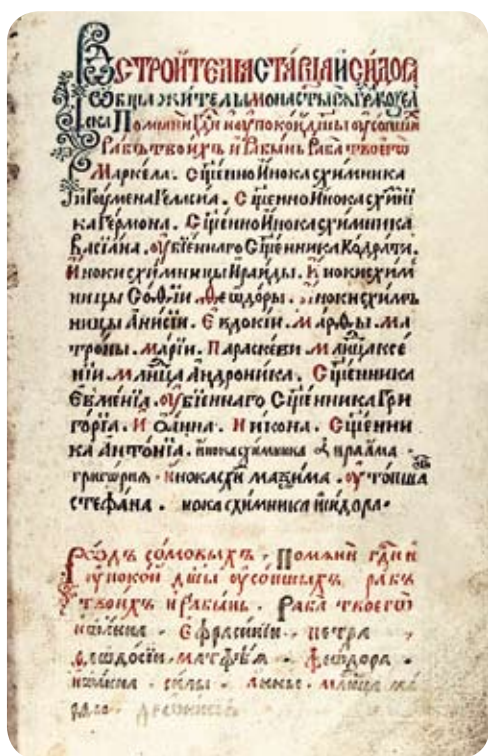 Строителѧ старца исидора
ѡбщажителѧ монастырѧ
Помѧни Гд҃и и оупокой дш҃ы оусопши
Рабъ твоихъ и Рабынь Раба твоегѡ
Маркела. Сщ҃енно Инока схимника
Игоумена Геласїа. Сщ҃енно Инока схи҃ни
ка Гермона. Сщ҃енно Инока схимника
Васїлїа. оубїеннаго Сщ҃енника Кодрата.
Иноки схимницы Ираиды. Иноки схим
ницы Софїи. Феѡдоры. Иноки схимъ
ницы Анисїи. Евдокїи. Марѳы. Ма
троны. Марїи. Параскеви. Млнца Ксе
нїи. Млнца Андроника. Сщ҃енника
Евменїа. оубїеннаго Сщ҃енника Гри
горїа. Иѡанна. Никона. Сщ҃енни
ка Антонїа. инока схимника Авраама.
григорїа. инока схи маѯима. оутопша
стефана. инока схимника исидора.
Родъ сомовыхъ. Помѧни гд҃и и
оупокой дш҃ы оусопшыхъ рабъ
твоихъ и Рабынь. Раба твоегѡ
иѡанна. Ефрасинїи. петра.
феѡдосїи. матѳѣа. феѡдора.
иѡанна. силы. анны. млнца